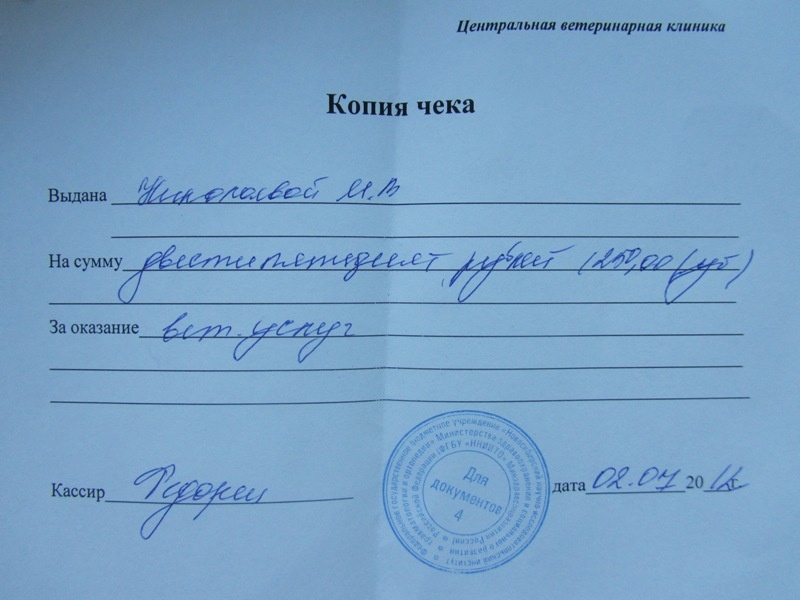 Центральная ветеринарная клиника
Копия чека
Выдана Николаевой М.В
На сумму двестипятидесят рублей (250,00 (руб)
За оказание вет. услуг
Кассир
Для
документов
4
дата 02.07 20 г.
Федеральное государственное бюджетное учреждение «Новосибирский научно-исследовательский институт травматологии и ортопедии» Министерства здравоохранения и социального развития Российской Федерации (ФГБУ «ННИИТО» Минздравсоцразвития России)